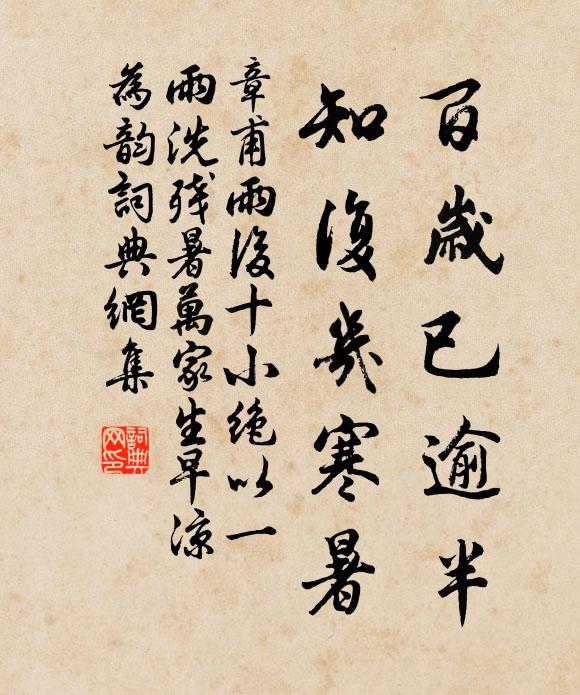 百歲已逾半
知復幾寒暑
章甫雨後十小絶以一
雨洗殘暑萬家生早涼
為韵詞典網集
詞典
网印